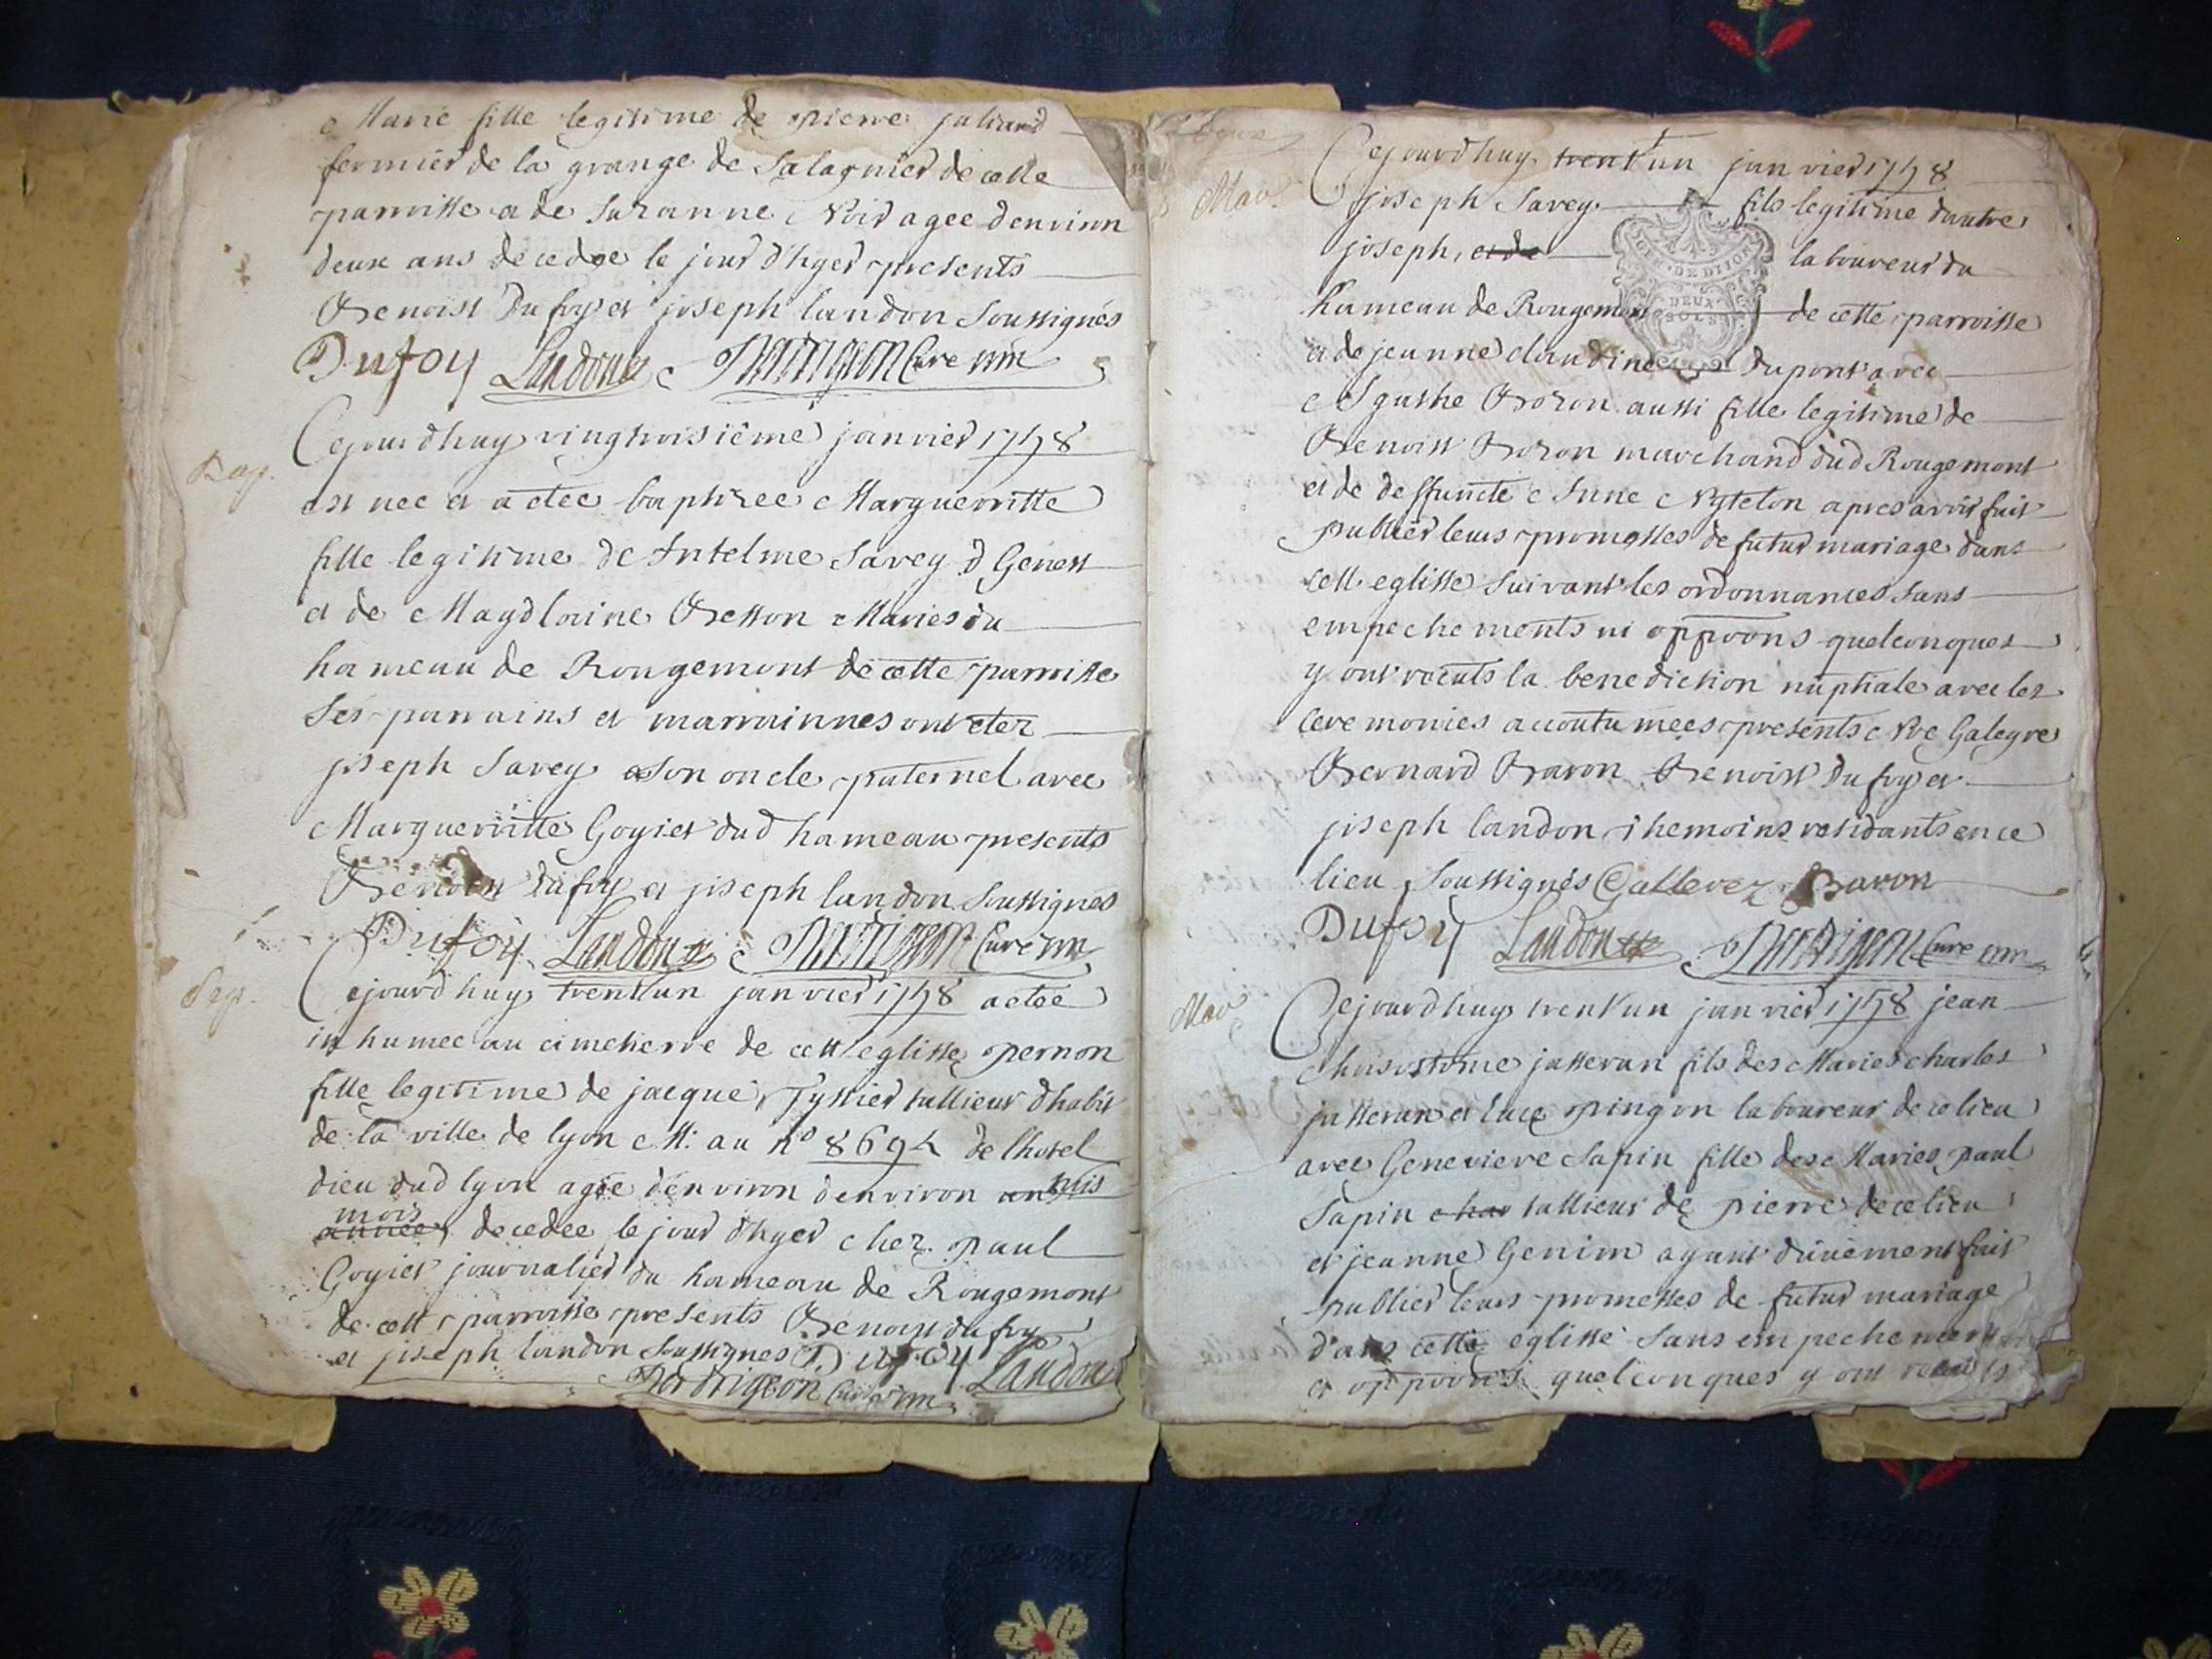 Marie fille legitime de pierre juliand
fermier de la grange de Salagnier de cette
parroisse a de Suzanne Noir agee denviron
deux ans decedee le jour dhyer presents
Benoist Dufoy et joseph landon soussignés
Dufoy Landon Curé
Bap.
Cejourdhuy vingtroisiême janvier 1758
est nee et a etee baptizee Marguerritte
fille legitime de Antelme Savey d Genest
et de Magdlaine Besson Maries du
hameau de Rougemont de cette parroisse
Ses parrains et marrainnes ont etez
joseph Savey son oncle paternel avec
Marguerritte Goyiet dud hameau presents
Benoist dufoy et joseph landon Soussignés
Dufoy Landon Curé
Sep.
Cejourdhuy trent'un janvier 1758 a etee
inhumee au cimetierre de cett eglisse pernon
fille legitime de jacque Tyssier tallieur dhabit
de la ville de lyon M: au no 8694 de lhotel
dieu dud lyon agée d'environ denviron un mois
mois
années decedee le jour dhyer chez paul
Goyiet journalier du hameau de Rougemont
de cett parroisse presents Benoist dufoy
et joseph landon soussignes Dufoy Landon
Perdrigeon Curé
Mar.
Cejourdhuy trent'un janvier 1758
joseph Savey fils legitime dautre
joseph, et de laboureur du
GEN. DE DIJON
DEUX
SOLS
hameau de Rougemont de cette parroisse
et de jeanne claudine dupont avec
Agathe Bozon aussi fille legitime de
Benoist Bozon marchand dud Rougemont
et de deffuncte Anne Nytelon apres avoir fait
publier leurs promesses de futur mariage dans
cett eglisse suivant les ordonnances sans
empechements ni oppoons quelconques
y ont recents la benediction nuptiale avec les
ceremonies accoutumees presents Galeyre
Bernard Baron Benoist dufoy et
joseph landon themoins residants en ce
lieu soussignés Gallerez Baron
Dufoy Landon Perdrigeon Curé
Mar
Cejourdhuy trent'un janvier 1758 jean
chrisostome jasseran fils des Maries charles
jasseran et luce pingon laboureur de ce lieu
avec Genevieve Sapin fille des Maries paul
Sapin char tallieur de pierre de ce lieu
et jeanne Genim ayant düement fait
publier leurs promesses de futur mariage
dans cette eglisse sans empechement
et oppoons quelconques y ont